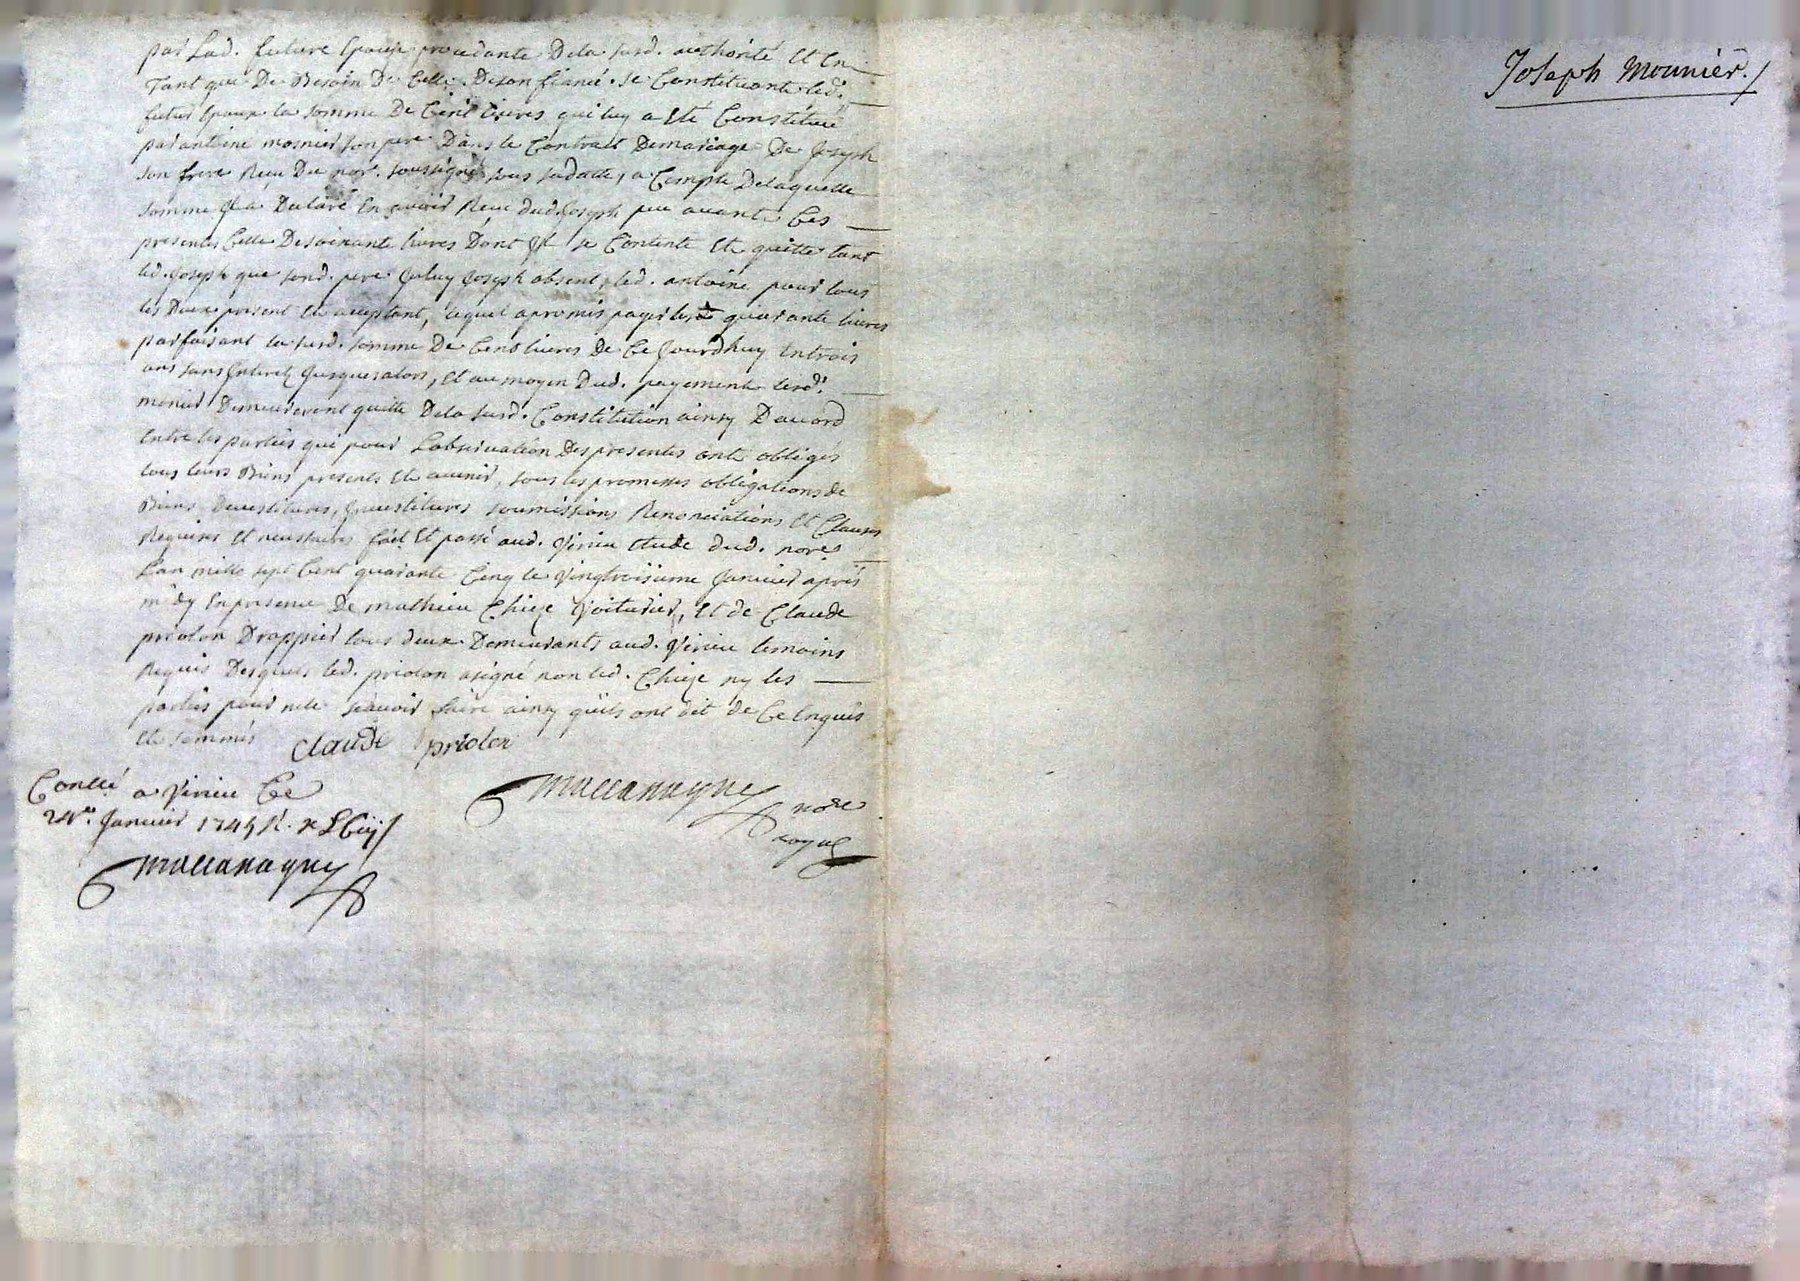 par Lad. future Epouse procedante De la susd. authorité Et En
Tant que De Besoin De Celle De son fiancé. se Constituante led.
futur Epoux la somme De Cent livres qui luy a Eté Constituée
par antoine monier son pere Dans le Contrat De mariage De Joseph
son frere Reçu Du nore. soussigné sous sa datte, a Compte De laquelle
somme Il a Declaré En avoir Reçu dud. Joseph peu avant Ces
presentes Celle De soixante livres Dont Il se Contente Et quitte tant
led. Joseph que sond. pere Iceluy Joseph absent, led. antoine pour tous
les Deux present Et aceptant, lequel a promis payer les quarante livres
parfaisant la susd. somme De Cens livres De Ce Jourdhuy En trois
ans sans Interet Jusques alors, Et au moyen Dud. payement lesd.
monier Demeureront quitte De la susd. Constitution ainsy D'acord
Entre les parties qui pour L'observation Des presentes ont obligés
tous leurs Biens presents Et avenir, sous les promesses obligations de
Biens Devestitures, Investitures soumissions Renonciations Et Clauses
Requises Et necessaires fait Et passé aud. Virieu Etude dud. nore
L'an mille sept Cent quarante Cinq le vingtroisieme Janvier après
midy En presence De mathieu Chieze Voiturier, Et de Claude
priolon Drappier tous deux Demeurants aud. Virieu temoins
Requis Desquels led. priolon a signé non led. Chieze ny les
parties pour ne le sçavoir faire ainsy qu'ils ont dit de Ce Enquis
Et sommés Claude priolon
Joseph Mounier./
Conllé a Virieu Ce
24e. Janvier 1745 R.
maccanaguy nore
royal
maccanaguy